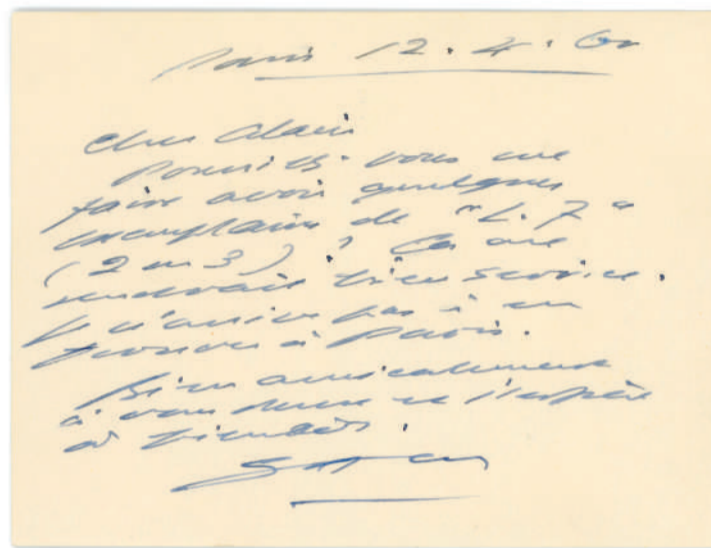 Paris 12.4.60
Cher Alain
Pourriez-vous me
faire avoir quelques
exemplaires de "L. 7"
(2 ou 3) ? Ça me
rendrait bien service.
Je n'arrive pas à en
trouver à Paris.
Bien amicalement
à vous deux et j'espère
à bientôt.